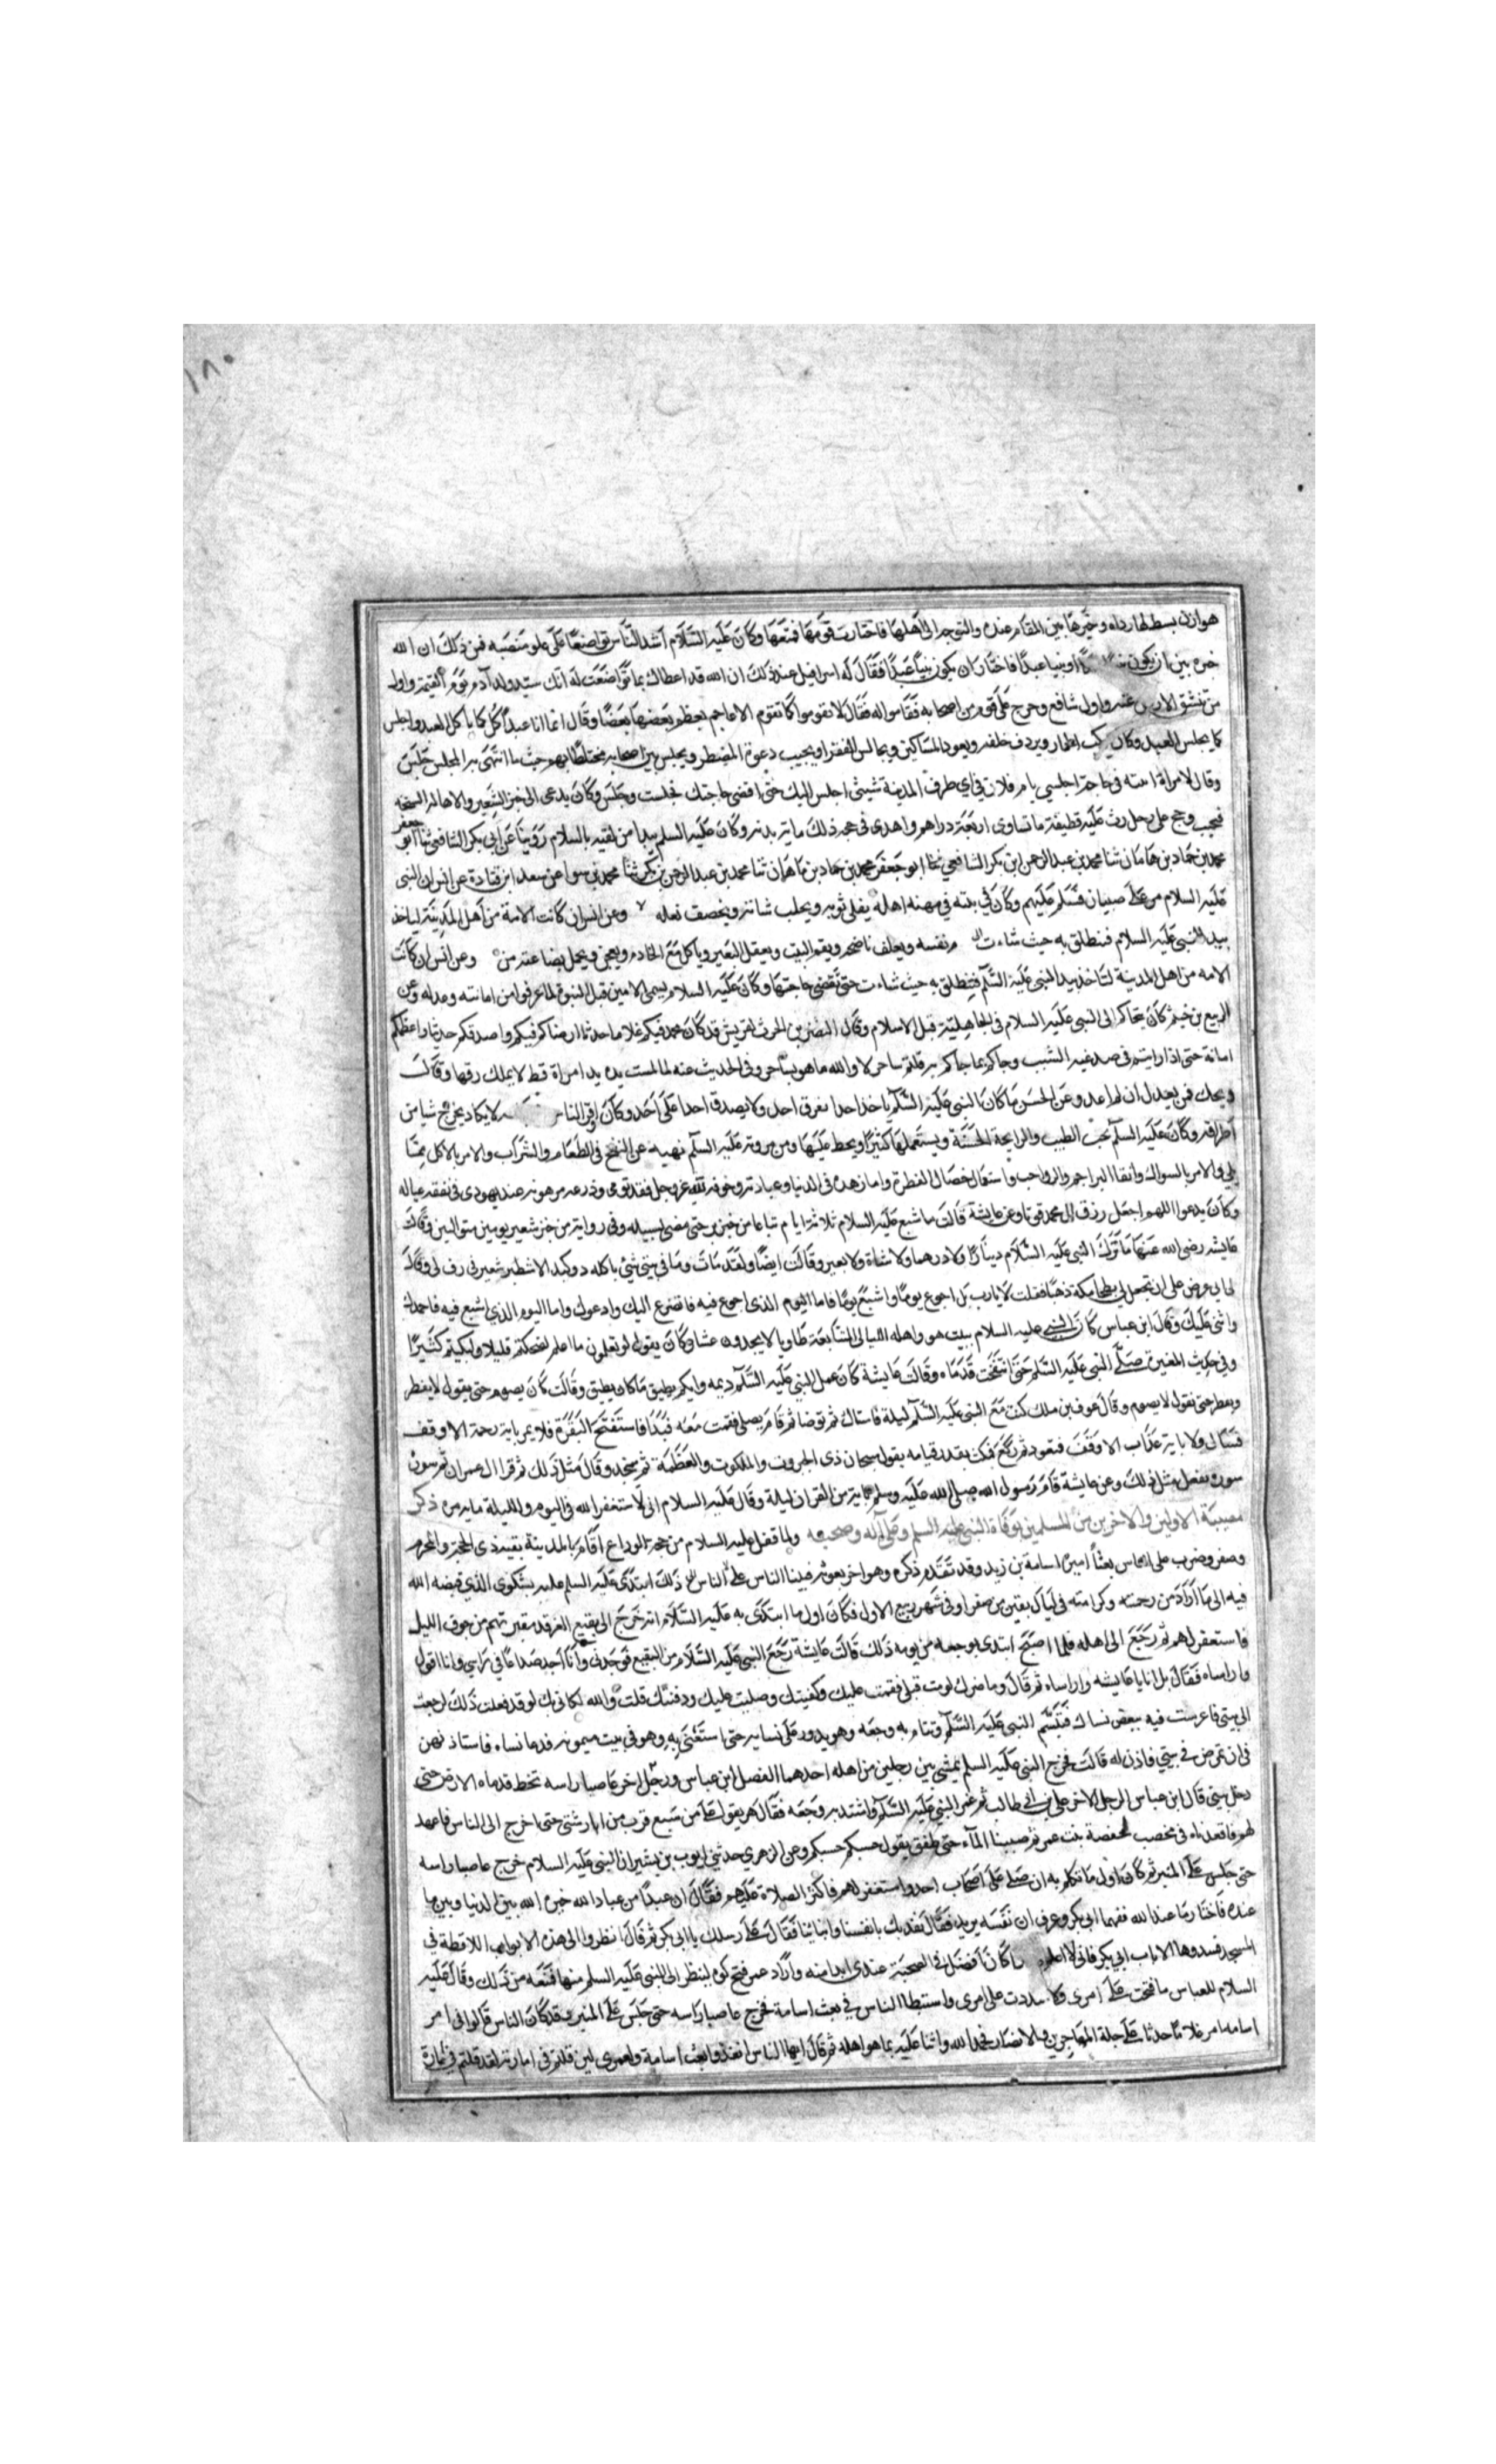 ١٨٠
هوازن بسط لها رداه وخيرها بين المقام عنده والتوجه الى اهلها فاختارت قومها فمتعها وكان عليه السلام اشد الناس تواضعا على علو منصبه فمن ذلك ان الله
خيره بين ان يكون نبيا او نبيا عبدا فاختار ان يكون نبيا عبدا فقال له اسرافيل عند ذلك ان الله قد اعطاك بما تواضعت له انك سيد ولد آدم يوم القيمة واول
من تنشق الارض عنه واول شافع وخرج على قوم من اصحابه فقاموا له فقال لا تقوموا كما تقوم الاعاجم يعظم بعضها بعضا وقال انما انا عبد اكل كما ياكل العبد واجلس
كما يجلس العبد وكان يركب الحمار ويردف خلفه ويعود المساكين ويجالس الفقرا ويجيب دعوة المضطر ويجلس بين اصحابه مختلطا بهم حيث ما انتهى به المجلس جلس
وقال لامراة اتته في حاجة اجلسي يا ام فلان في اي طرف المدينة شيتي اجلس اليك حتى اقضي حاجتك فجلست وجلس وكان يدعى الى خبز الشعير والاهالة السنخه
فيجيب وحج على رحل رث عليه قطيفة ما تساوى اربعة دراهم واهدى في حجه ذلك ماية بدنه وكان عليه السلم يبدا من لقيه بالسلام روينا عن ابي بكر الشافعي ثنا ابو جعفر
محمد بن حماد بن هامان ثنا محمد بن عبد الرحمن ابن بكر الشافعي ثنا ابو جعفر محمد بن حماد بن ماهان ثنا محمد بن عبد الرحمن بن بكر ثنا محمد بن سوا عن سعد ابن قتادة عن انس ان النبى
عليه السلام مر على صبيان فسلم عليهم وكان في بيته في مهنه اهله يفلى ثوبه ويحلب شاته ويخصف نعله وعن انس ان كانت الامة من اهل المدينة لياخذ
بيد النبي عليه السلام فينطلق به حيث شاءت نفسه ويعلف ناضحه ويقم البيت ويعقل البعير وياكل مع الخادم ويعجن ويحمل بضاعته من وعن انس ان كانت
الامه من اهل المدينة لتاخذ بيد النبي عليه السلم فينطلق به حيث شاءت حتى تقضى حاجتها وكان عليه السلام يسمى الامين قبل النبوة لما عرفوا من امانته وعدله وعن
الربيع بن خيثم كان يتحاكم الى النبى عليه السلام فى الجاهلية قبل الاسلام وقال النضر بن الحرث لقريش قد كان محمد فيكم غلاما حدثا ارضاكم فيكم واصدقكم حديثا واعظمكم
امانة حتى اذا رايتم فى صدغيه الشيب وجاكم بما جاكم به قلتم ساحر لا والله ما هو بساحر وفى الحديث عنه لما لمست يده يد امراة قط لا يملك رقها وقال
ويحك فمن يعدل ان لم اعدل وعن الحسن ما كان النبي عليه السلم ياخذ احدا بقرف احد ولا يصدق احدا على احد وكان اوقر الناس لا يكاد يخرج شيا من
اطرافه وكان عليه السلم يحب الطيب والرايحة الحسنة ويستعملها كثيرا ويحض عليها ومن مروته عليه السلم نهيه عن النفخ في الطعام والشراب والامر بالاكل مما
يلي والامر بالسواك وانقا البراجم والرواجب واستعمال خصال الفطرة واما زهده فى الدنيا وعبادته وخوفه لله عز وجل فقد توفى ودرعه مرهونه عند يهودى في نفقه عياله
وكان يدعوا اللهم اجعل رزق ال محمد قوتا وعن عايشة قالت ما شبع عليه السلام ثلاثة ايام تباعا من خبز بر حتى مضى لسبيله وفى رواية من خبز شعير يومين متواليين وقالت
عايشه رضى الله عنها ما ترك النبي عليه السلام دينارا ولا درهما ولا شاة ولا بعير وقالت ايضا ولقد مات وما في بيتي شئ ياكله ذو كبد الا شطر شعير فى رف لى وقال
لى انى عرض على ان تجعل لي بطحا مكة ذهبا فقلت لا يارب بل اجوع يوما واشبع يوما فاما اليوم الذى اجوع فيه فاتضرع اليك وادعوك واما اليوم الذي اشبع فيه فاحمدك
واثنى عليك وقال ابن عباس كان النبي عليه السلام يبيت هو واهله الليالى المتتابعة طاويا لا يجدون عشا وكان يقول لو تعلمون ما اعلم لضحكتم قليلا ولبكيتم كثيرا
وفى حديث المغيرة صلى النبى عليه السلم حتى انتفخت قدماه وقالت عايشة كان عمل النبي عليه السلم ديمه وايكم يطيق ما كان يطيق وقالت كان يصوم حتى يقول لا يفطر
ويفطر حتى نقول لا يصوم وقال عوف بن ملك كنت مع النبى عليه السلم ليلة فاستاك ثم توضا ثم قام يصلى فقمت معه فبدا فاستفتح البقرة فلا يمر باية رحمة الا وقف
فسال ولا باية عذاب الا وقف فتعوذ ثم ركع فمكث بقدر قيامه يقول سبحان ذى الجبروت والملكوت والعظمة ثم سجد وقال مثل ذلك ثم قرا ال عمران ثم سورة
سورة يفعل مثل ذلك وعن عايشة قام رسول الله صلى الله عليه وسلم باية من القران ليلة وقال عليه السلام انى لاستغفر الله في اليوم والليلة ماية مره ذكر
مصيبة الاولين والاخرين من المسلمين بوفاة النبي عليه السلم وعلى آله وصحبه ولما قفل عليه السلام من حجة الوداع اقام بالمدينة بقية ذى الحجة والمحرم
وصفر وضرب على الناس بعثا اميره اسامة بن زيد وقد تقدم ذكره وهو اخر بعوثه فبينا الناس على ذلك ابتدى عليه السلم بشكوى الذي قبضه الله
فيه الى ما اراد من رحمته وكرامته فى ليال بقين من صفر او فى شهر ربيع الاول فكان اول ما ابتدى به عليه السلام انه خرج الى بقيع الغرقد من جوف الليل
فاستغفر لهم ثم رجع الى اهله فلما اصبح ابتدى بوجعه من يومه ذلك قالت عايشة رجع النبى عليه السلام من البقيع فوجدنى وانا اجد صداعا في راسي وانا اقول
واراساه فقال بل انا يا عايشه واراساه ثم قال وما ضرك لو مت قبلى فقمت عليك وكفنتك وصليت عليك ودفنتك قلت والله لكانى بك لو قد فعلت ذلك لرجعت
الى بيتى فاعرست فيه ببعض نسائك فتبسم النبى عليه السلم وتتام به وجعه وهو يدور على نسايه حتى استعز به وهو في بيت ميمونه فدعا نساءه فاستاذنهن
فى ان يمرض فى بيتي فاذن له قالت فخرج النبى عليه السلم يمشى بين رجلين من اهله احدهما الفضل ابن عباس ورجل اخر عاصبا راسه تخط قدماه الارض حتى
دخل بيتى قال ابن عباس الرجل الاخر علي بن ابى طالب ثم غمر النبي عليه السلم واشتد به وجعه فقال هريقوا على من سبع قرب من ابار شتى حتى اخرج الى الناس فاعهد
لهم فاقعدناه فى مخضب لحفصة بنت عمر ثم صببنا الماء حتى طفق يقول حسبكم حسبكم وعن الزهري حدثني ايوب بن بشير ان النبى عليه السلام خرج عاصبا راسه
حتى جلس على المنبر ثم كان اول ما تكلم به ان صلى على اصحاب احد واستغفر لهم فاكثر الصلاة عليهم فقال ان عبدا من عباد الله خيره الله بين الدنيا وبين ما
عنده فاختار ما عند الله ففهما ابى بكر وعرف ان نفسه يريد فقال نفديك بانفسنا وابنائنا فقال على رسلك يا ابى بكر ثم قال انظروا الى هذه الابواب اللافظة في
المسجد فسدوها الا باب ابى بكر فانى لا اعلم احدا كان افضل في الصحبة عندى ابدا منه واراد عمر فتح كوه لينظر الى النبى عليه السلم منها فمنعه من ذلك وقال عليه
السلام للعباس ما فتحت على امرى ولا سددت على امرى واستبطا الناس في بعث اسامة فخرج عاصبا راسه حتى جلس على المنبر وقد كان الناس قالوا فى امر
اسامه امر غلاما حدثا على جلة المهاجرين والانصار فحمد الله واثنا عليه بما هو اهله ثم قال ايها الناس انفذوا بعث اسامة ولعمرى لين قلتم فى امارته لقد قلتم في امارة